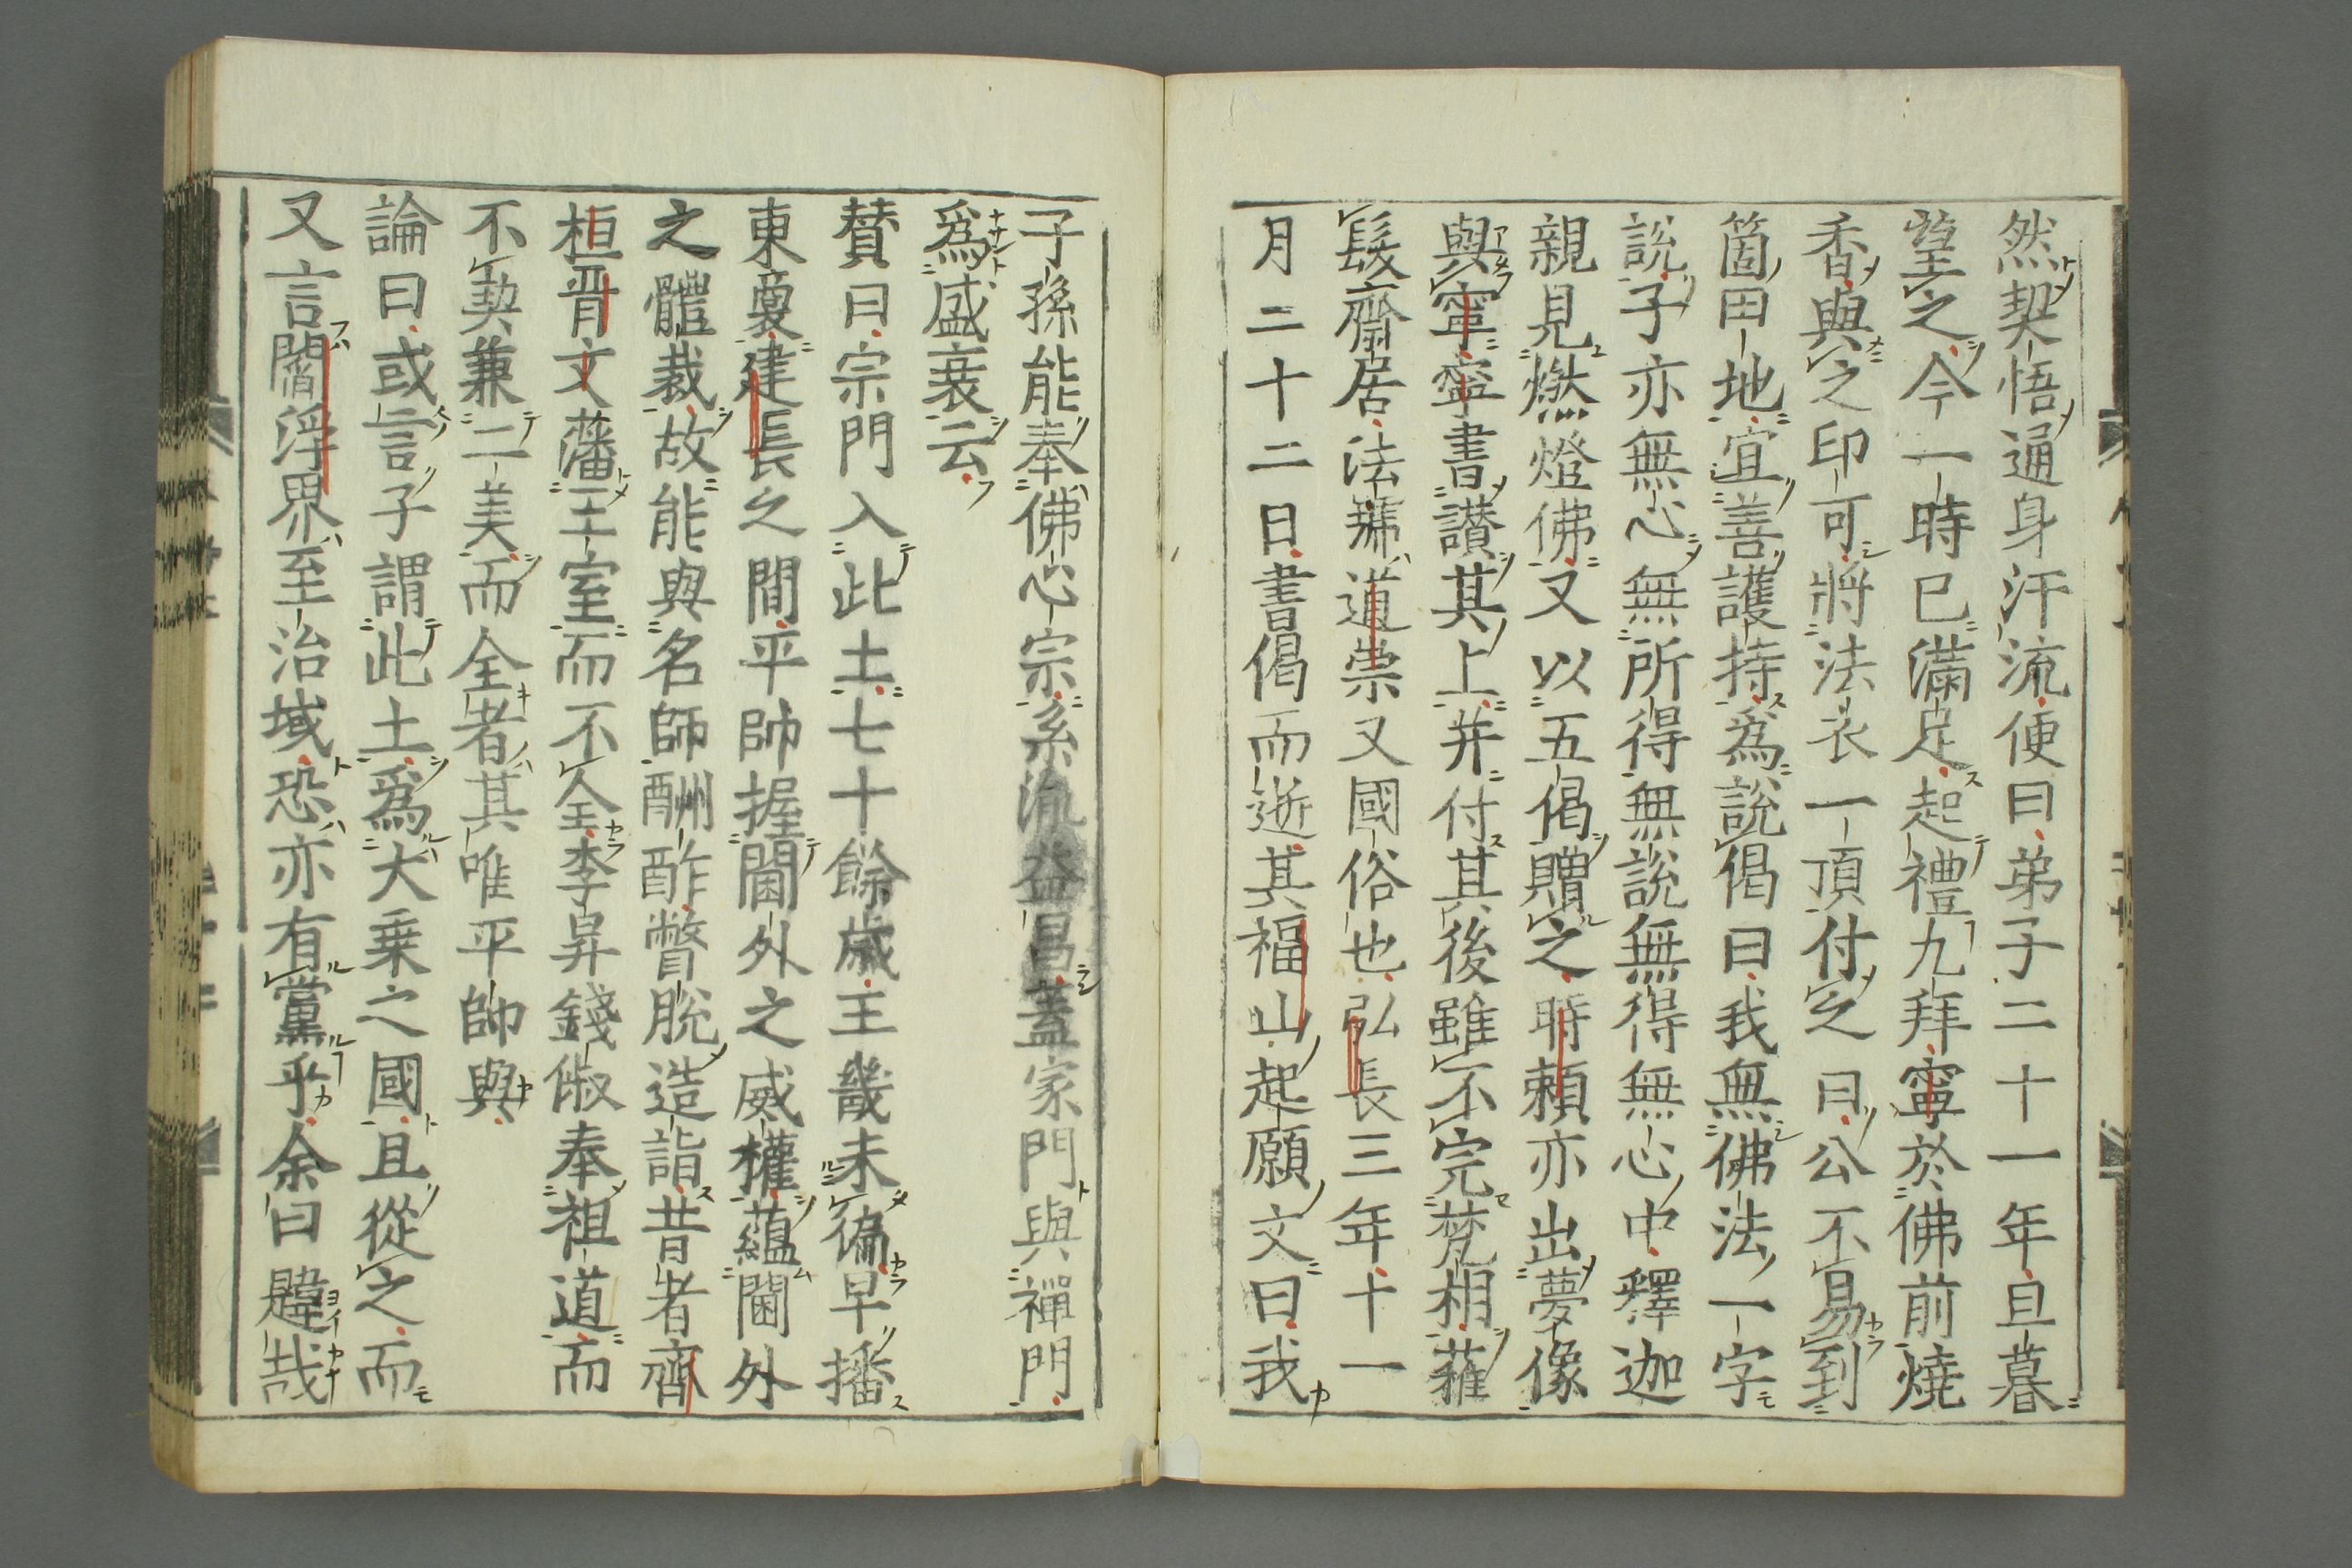 然契悟通身汗流便曰弟子二十一年旦暮
望之今一時已滿足起禮九拜寧於佛前燒
香與之印可將法衣一頂付之曰公不易到
箇田地宜善護持爲說偈曰我無佛法一字
說子亦無心無所得無說無得無心中釋迦
親見燃燈佛又以五偈贈之時頼亦出夢像
與寧寧書讃其上并付其後雖不完梵相薙
髮齋居法號道崇又國俗也弘長三年十一
月二十二日書偈而逝其福山起願文曰我
子孫能奉佛心宗系流益昌蓋家門與禪門
爲盛衰云
賛曰宗門入此土七十餘歳王畿未徧早播
東憂建長之間平帥握閫外之威權蘊閫外
之體裁故能與名師酬酢瞥脫造詣昔者齊
桓晋文藩王室而不全李昇錢俶奉祖道而
不契兼二美而全者其唯平帥與
論曰或言子謂此土爲大乗之國且從之而
又言閻浮界至治域恐亦有黨乎余曰韙哉